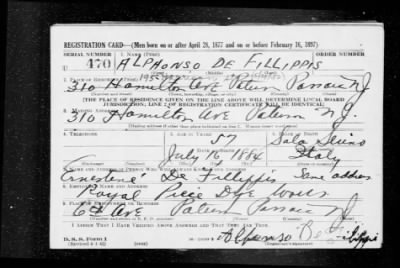 REGISTRATION CARD—(Men born on or after April 28, 1877 and on or before February 16, 1897)
SERIAL NUMBER 1. NAME (Print) ORDER NUMBER
U 470 ALPHONSO DE FILLIPPIS
2. PLACE OF RESIDENCE (Print)
310 Hamilton Ave Paterson Passaic N.J.
[THE PLACE OF RESIDENCE GIVEN ON THE LINE ABOVE WILL DETERMINE LOCAL BOARD
JURISDICTION; LINE 2 OF REGISTRATION CERTIFICATE WILL BE IDENTICAL]
3. MAILING ADDRESS
310 Hamilton Ave Paterson N.J.
4. TELEPHONE 5. AGE IN YEARS 6. PLACE OF BIRTH
57
DATE OF BIRTH
July 16 1884 Italy
7. NAME AND ADDRESS OF PERSON WHO WILL ALWAYS KNOW YOUR ADDRESS
Ernestene De Fillippis Same address
8. EMPLOYER'S NAME AND ADDRESS
Royal Piece Dye Works
9. PLACE OF EMPLOYMENT OR BUSINESS
6th Ave Paterson Passaic N.J.
I AFFIRM THAT I HAVE VERIFIED ABOVE ANSWERS AND THAT THEY ARE TRUE.
D. S. S. Form 1
Alphonso De Filippis